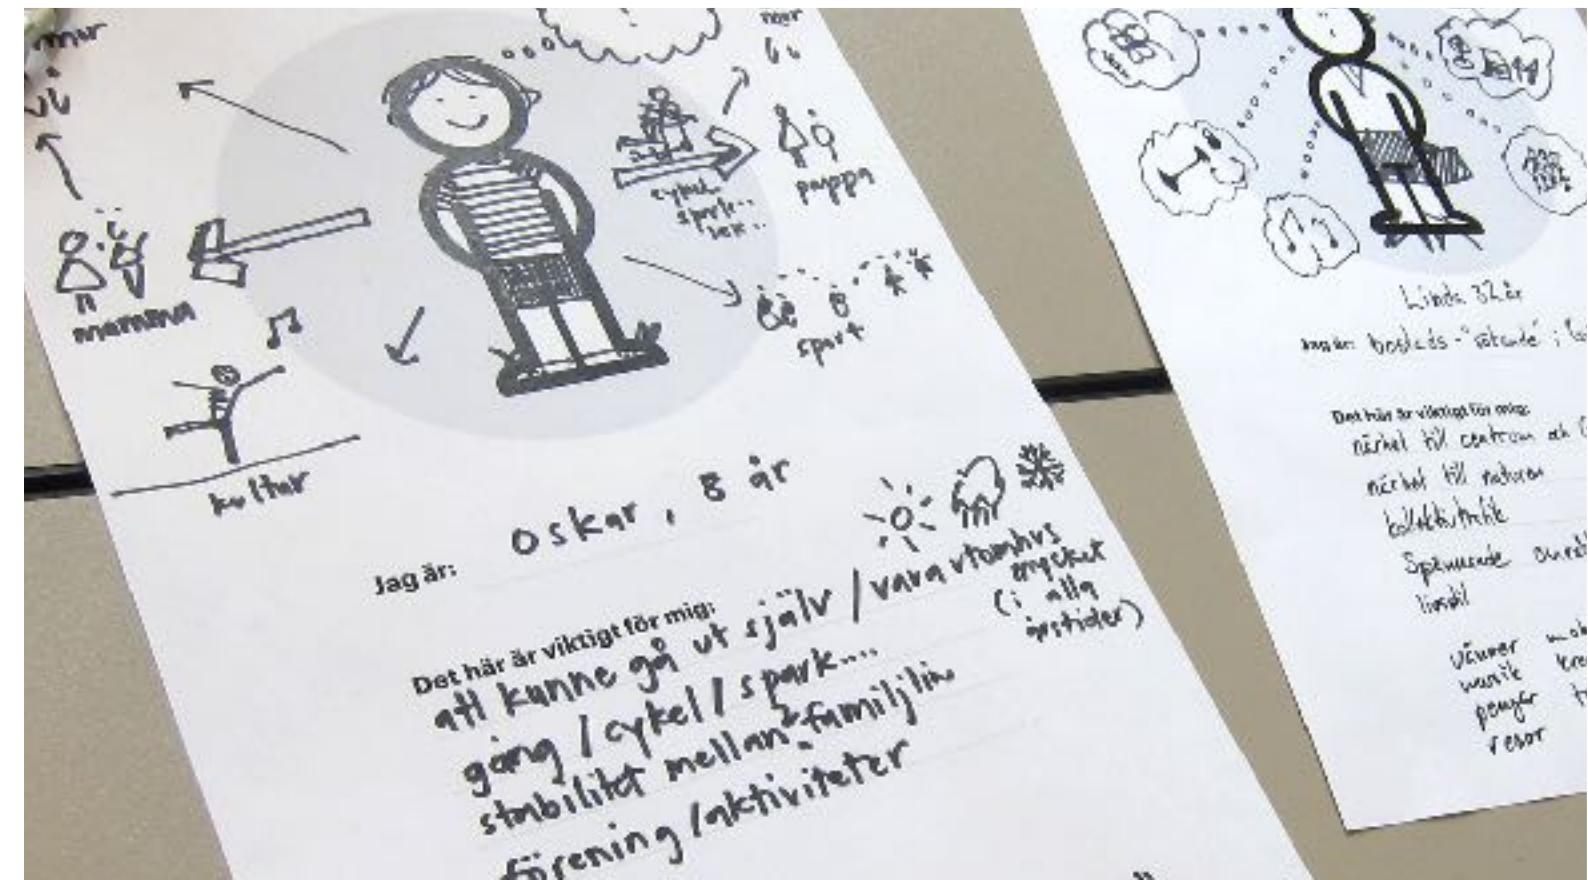 mor
mor
cykel
spark..
pappa
sport
mamma
kultur
Jag är: oskar, 8 år
Det här är viktigt för mig:
att kunne gå ut själv / vara utomhus
mycket
(i alla
årstider)
gång / cykel / spark....
stabilitet mellan 2 familjliv
förening / aktiviteter
Linda 32 år
Jag är: bostads-"sökande" i
Det här är viktigt för mig:
närhet till centrum och
närhet till naturen
kollektivtrafik
Spännande
livsstil
vänner
musik
pengar
resor